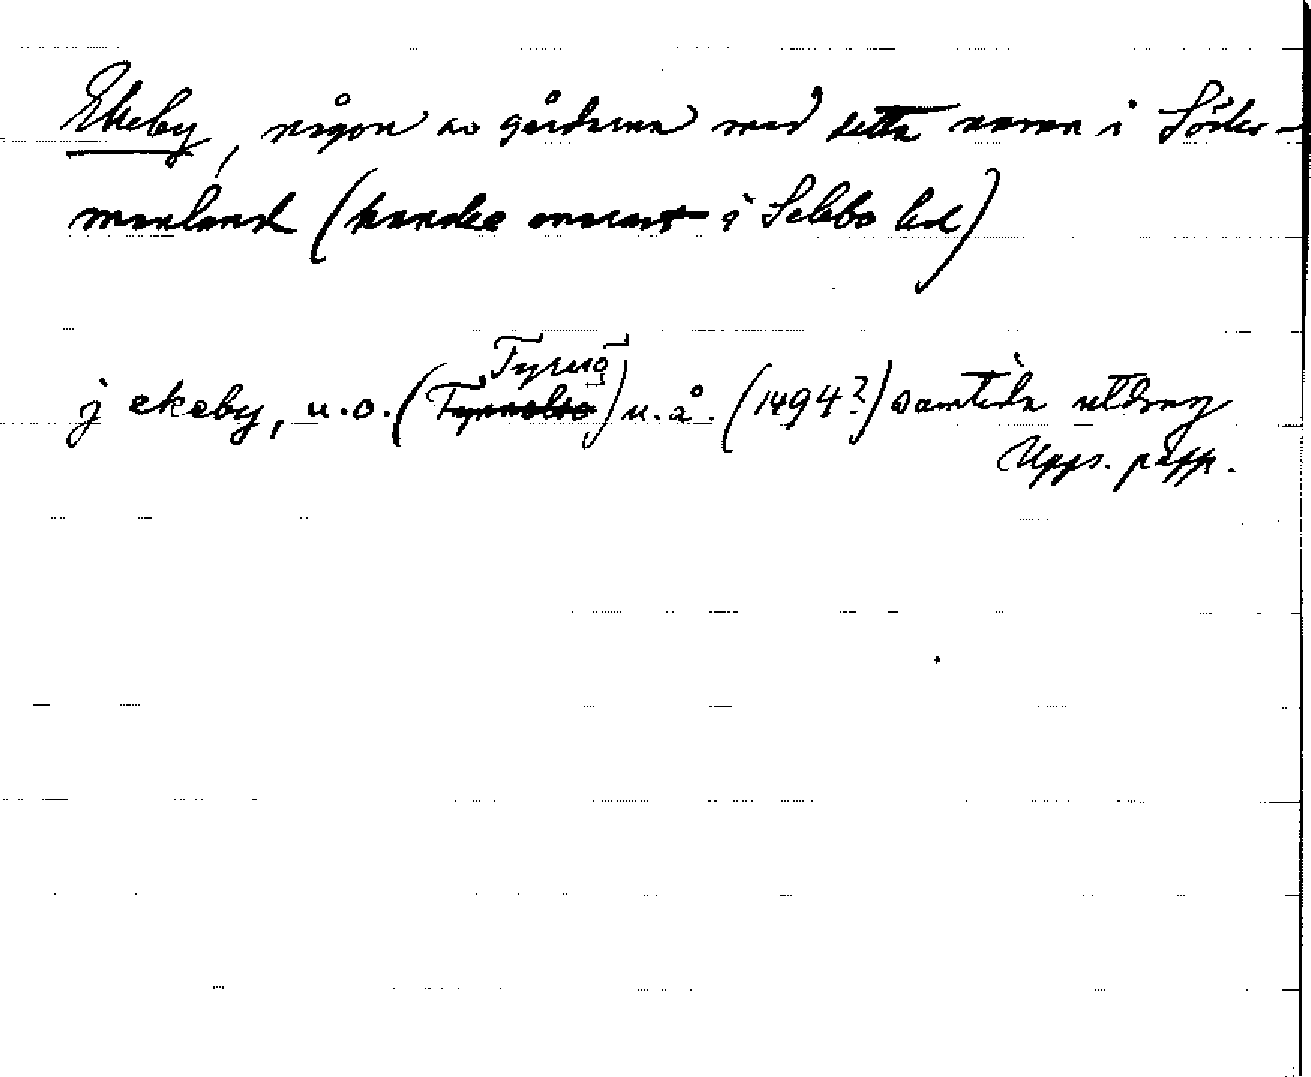 Ekeby, någon av gårdarna med detta namn i Söder-
manland (kanske snarast i Selebo hd)
Tyresö
j ekeby, u.o. (Tynnelsö) u.å. (1494?) samtida utdrag
Upps. papp.